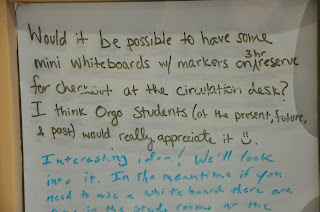 Would it be possible to have some
mini whiteboards w/ markers on 3hr reserve
for checkout at the circulation desk?
I think Orgo Students (of the present, future,
& past) would really appreciate it :).
Interesting idea! We'll look
into it. In the meantime if you
need to use a whiteboard there are
in the study rooms at the